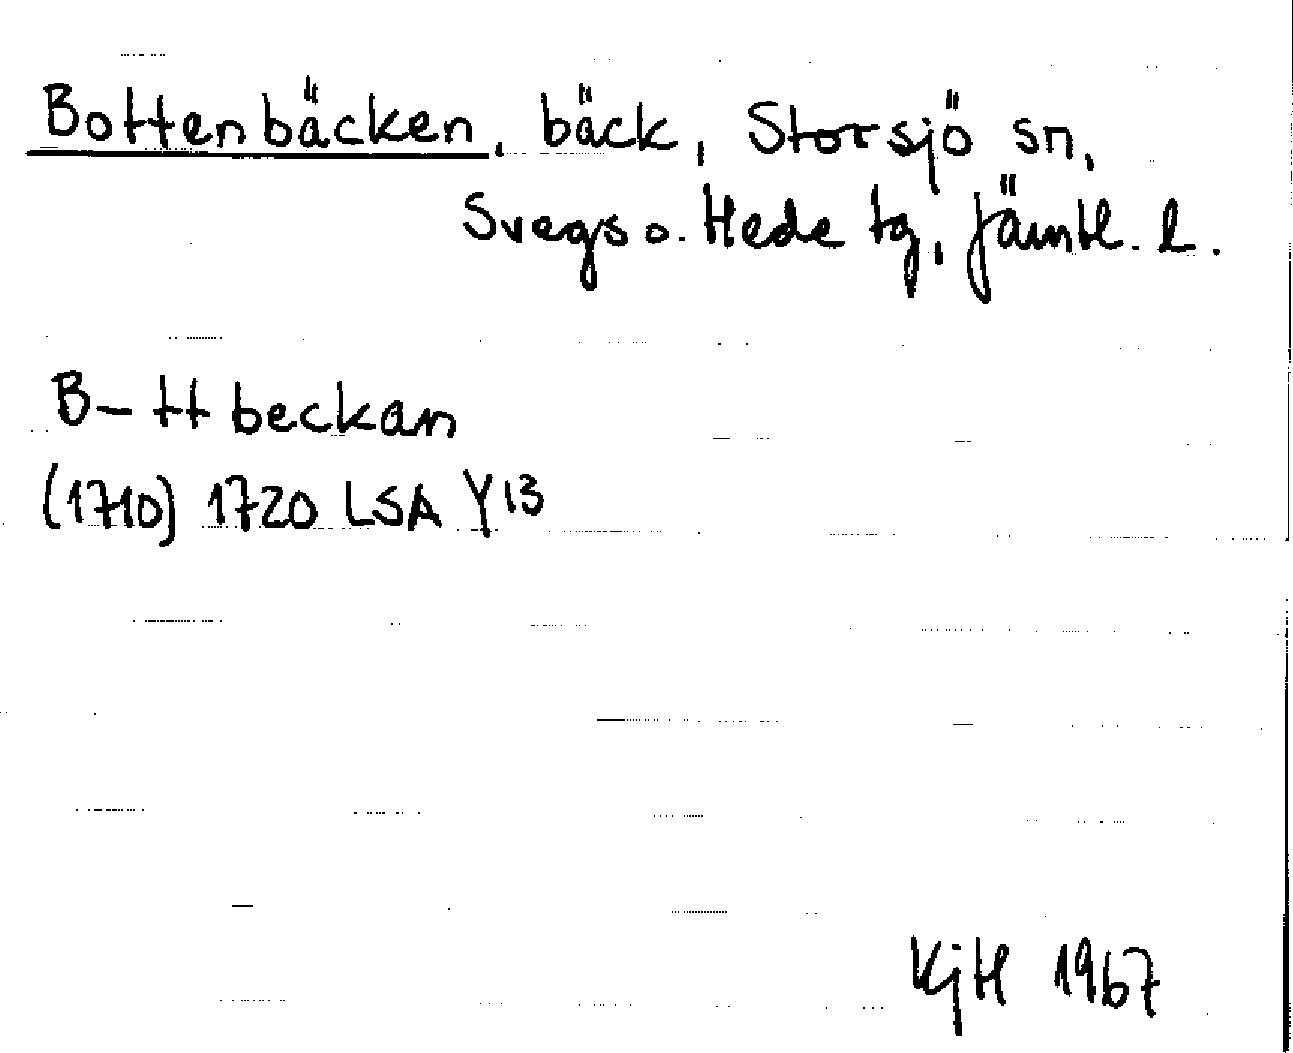 Bottenbäcken, bäck, Storsjö sn,
Svegs o. Hede tg, Jämtl. l.
B–ttbeckan
(1710) 1720 LSA Y13
KjH 1967